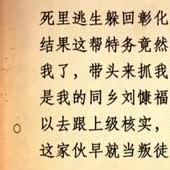 死里逃生躲回彰化
结果这帮特务竟然
我了，带头来抓我
是我的同乡刘慷福
以去跟上级核实，
这家伙早就当叛徒